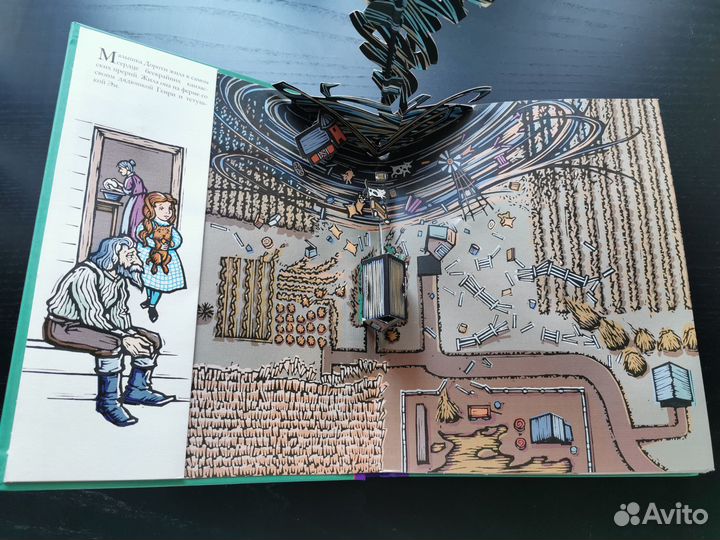 Малышка Дороти жила в самом
сердце бескрайних канзас-
ских прерий. Жила она на ферме со
своим дядюшкой Генри и тетуш-
кой Эм.
Avito